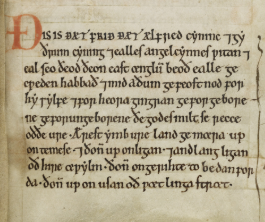 Ðis is ðæt frið ðæt ælfred cyninc ⁊ gy
ðrum cyning ⁊ ealles angel cynnes ƿitan ⁊
eal seo ðeod ðe on eastænglum beoð ealle ge
cƿeden habbað ⁊ mid aðum gefeostnod for
hy sylfe ⁊ for heora gingran ge for gebore
ne ge for ungeborene ðe godes miltse recce
oððe ure. Ærest ymb ure landgemæra up
on temese ⁊ ðoñ up on ligan. ⁊ andlang ligan
oð hire æƿylm. ðoñ on gerihte to bedanfor
da. ðoñ up on usan oð ƿætlinga stræt.